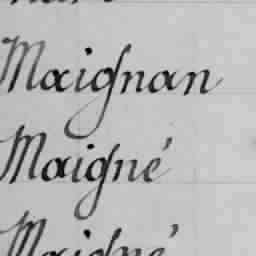 Maignan
Maigné
Maigné